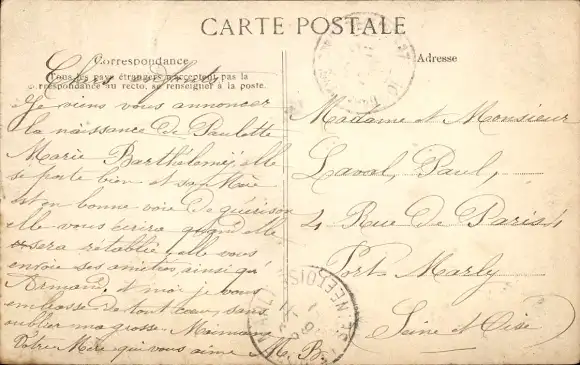 CARTE POSTALE
Correspondance
Tous les pays étrangers n'acceptent pas la
correspondance au recto, se renseigner à la poste.
Chers
Je viens vous annoncer
la naissance de Paulette
Marie Barthélemy, elle
se porte bien et sa Mère
est en bonne voie de guérison
elle vous écrira quand elle
sera rétablie, elle vous
envoie ses amitiés ainsi qu'
Armand et moi je vous
embrasse de tout cœur, sans
oublier ma grosse
Votre Mère qui vous aime M. B.
Adresse
Madame et Monsieur
Laval, Paul,
4 Rue de Paris 4
Port Marly
Seine et Oise
SEINE ET OISE